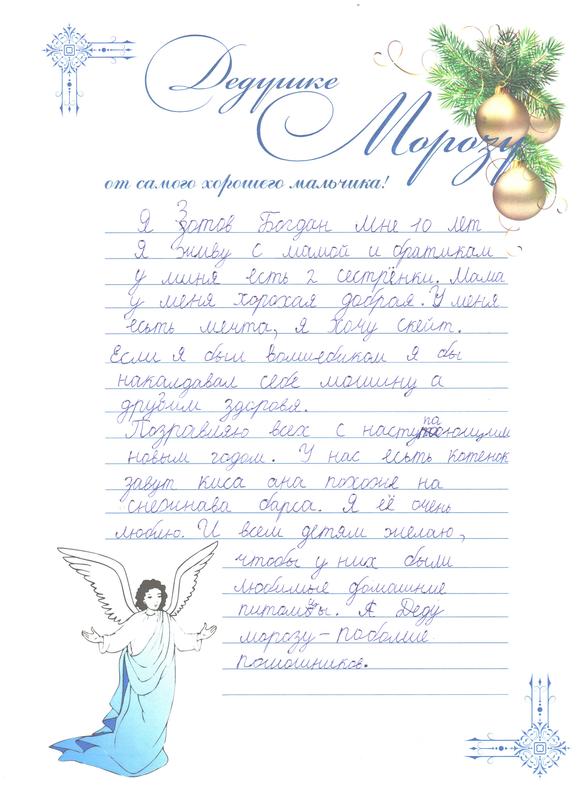 Дедушке
Морозу
от самого хорошего мальчика!
Я Зотов Богдан мне 10 лет
Я живу с мамой и братикам
у миня есть 2 сестрёнки. Мама
у меня хорохая добрая. У меня
есьть мечта, я хочу скейт.
Если я был волшебиком я бы
накалдавал себе машину а
другим здоровя.
Поздравляю всех с наступающим
новым годом. У нас есьть котенок
завут киса ана похоже на
снежнава барса. Я её очень
люблю. И всем детям желаю,
чтобы у них были
любимые домашние
питомцы. А Деду
морозу - поболше
помошников.